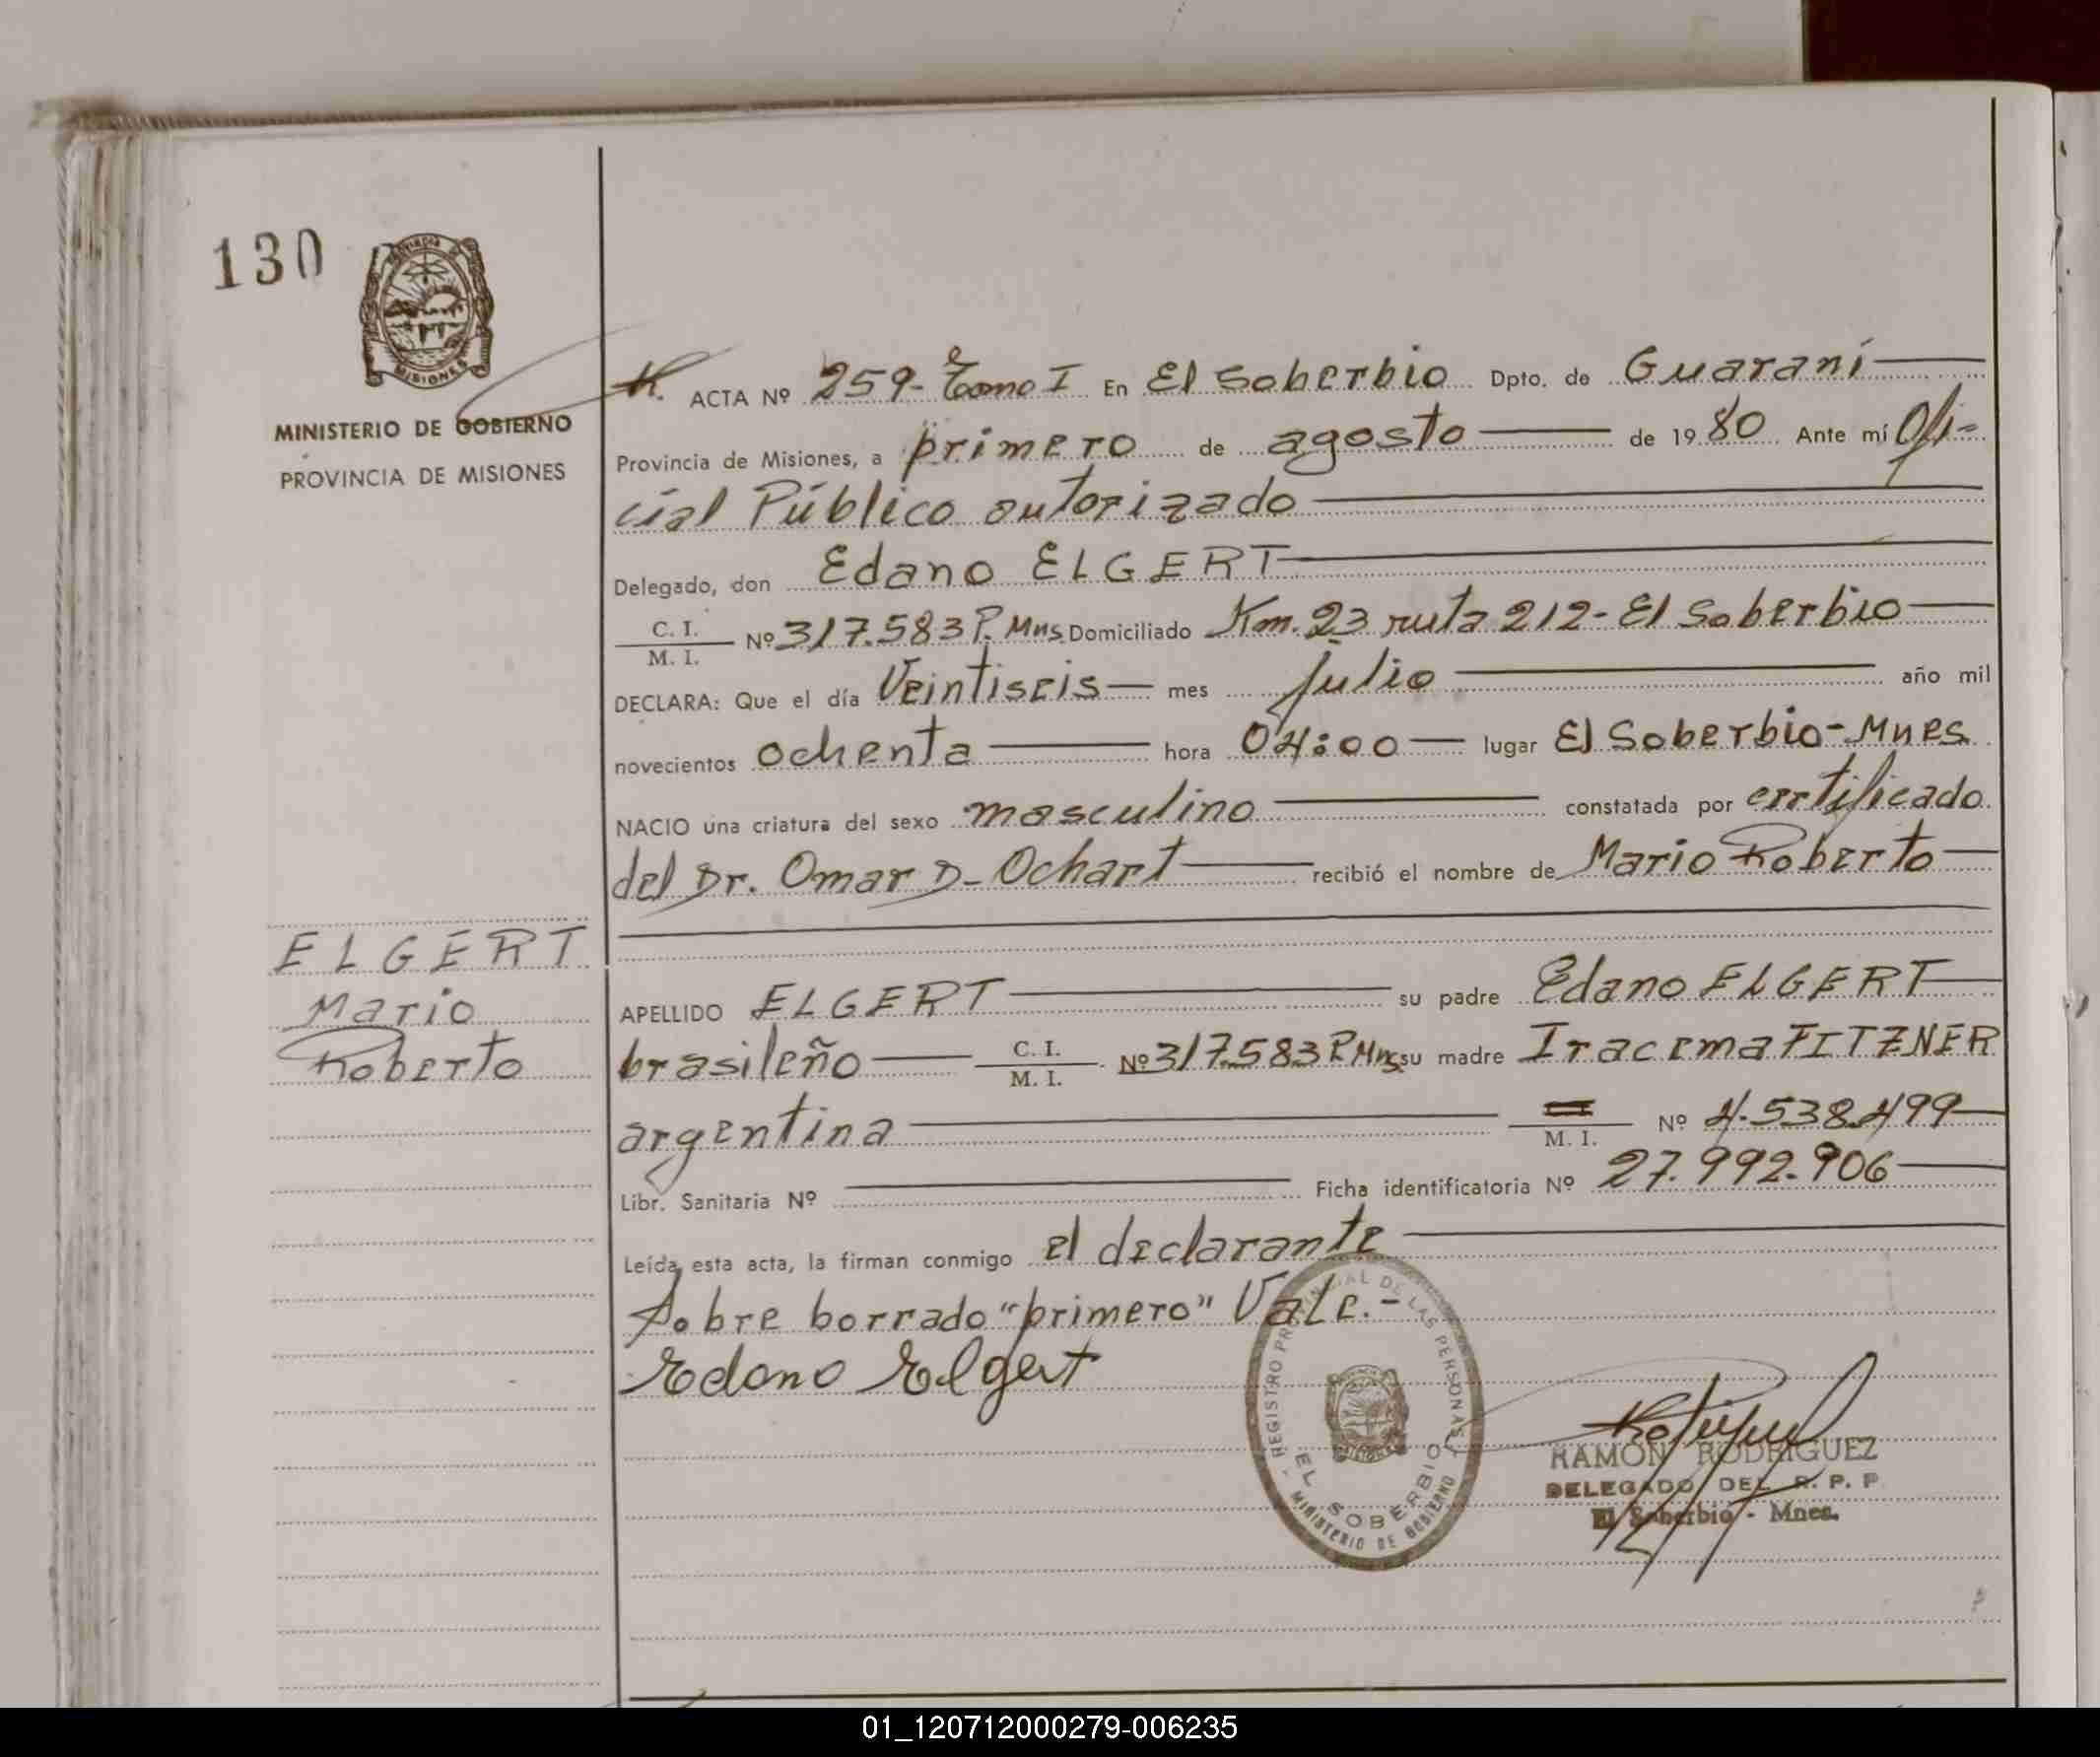 130
MISIONES
MINISTERIO DE GOBIERNO
PROVINCIA DE MISIONES
ACTA Nº 259- Tomo I En El Soberbio Dpto. de Guaraní
Provincia de Misiones, a primero de agosto de 1980 Ante mí Ofi-
cial Público autorizado
Delegado, don Edano ELGERT
C. I. / M. I. Nº 317.583 P. Mns Domiciliado Km. 23 ruta 212- El Soberbio
DECLARA: Que el día Veintiseis mes julio año mil
novecientos ochenta hora 04:00 lugar El Soberbio-Mnes
NACIO una criatura del sexo masculino constatada por certificado
del Dr. Omar D. Ochart recibió el nombre de Mario Roberto
ELGERT
Mario
Roberto
APELLIDO ELGERT su padre Edano ELGERT
brasileño C. I. / M. I. Nº 317.583 P. Mns su madre Iracema FITZNER
argentina M. I. Nº 4.538.499
Libr. Sanitaria Nº Ficha identificatoria Nº 27.992.906
Leída esta acta, la firman conmigo el declarante
Sobre borrado "primero" Vale.-
Edano Elgert
REGISTRO PROVINCIAL DE LAS PERSONAS
EL SOBERBIO
MINISTERIO DE GOBIERNO
RAMON RODRIGUEZ
DELEGADO DEL R. P. P
El Soberbio - Mnes.
01_120712000279-006235